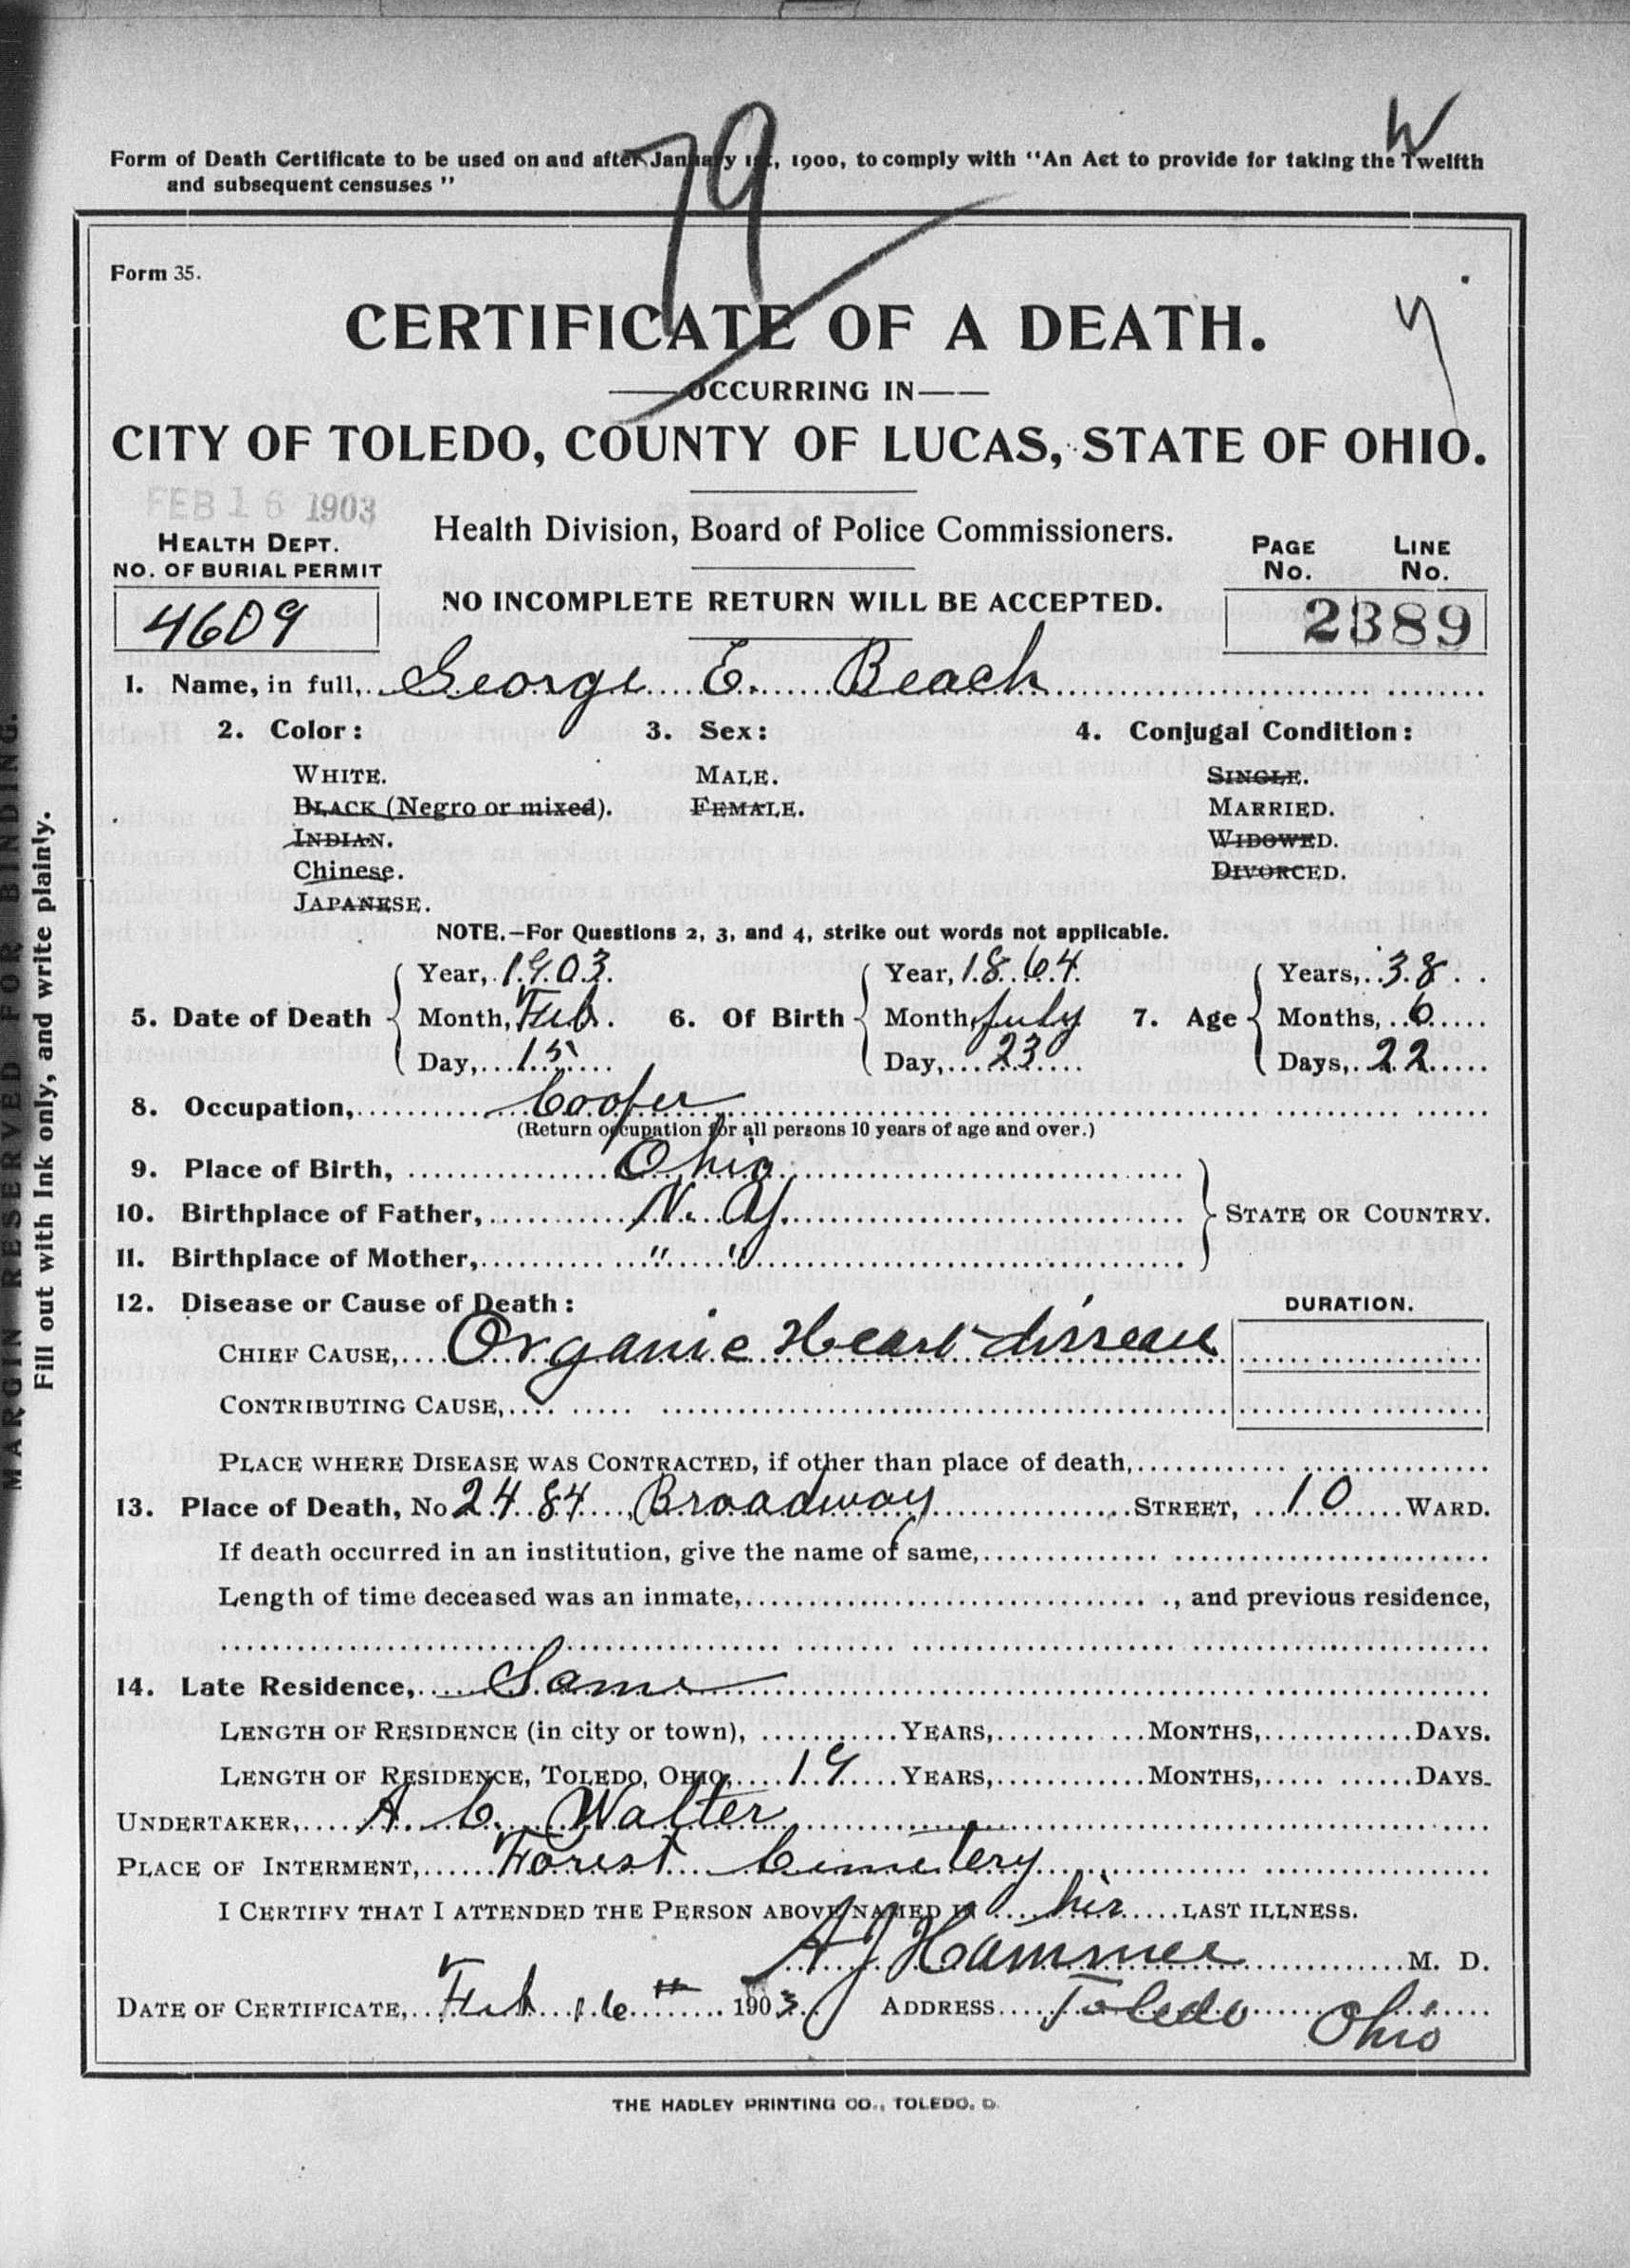 79
W
Form of Death Certificate to be used on and after January 1st, 1900, to comply with "An Act to provide for taking the Twelfth
and subsequent censuses "
Form 35.
CERTIFICATE OF A DEATH.
OCCURRING IN
CITY OF TOLEDO, COUNTY OF LUCAS, STATE OF OHIO.
FEB 16 1903
Health Division, Board of Police Commissioners.
HEALTH DEPT.
NO. OF BURIAL PERMIT
4609
NO INCOMPLETE RETURN WILL BE ACCEPTED.
PAGE No. LINE No.
2389
1. Name, in full, George E. Beach
2. Color: 3. Sex: 4. Conjugal Condition:
WHITE. MALE. SINGLE.
BLACK (Negro or mixed). FEMALE. MARRIED.
INDIAN. WIDOWED.
Chinese. DIVORCED.
JAPANESE.
NOTE.—For Questions 2, 3, and 4, strike out words not applicable.
Year, 1903. Year, 1864. Years, 38
5. Date of Death Month, Feb. 6. Of Birth Month, July 7. Age Months, 6
Day, 15 Day, 23 Days, 22
8. Occupation, Cooper
(Return occupation for all persons 10 years of age and over.)
9. Place of Birth, Ohio
10. Birthplace of Father, N. Y. STATE OR COUNTRY.
11. Birthplace of Mother, " "
12. Disease or Cause of Death: DURATION.
CHIEF CAUSE, Organic Heart disease
CONTRIBUTING CAUSE,
PLACE WHERE DISEASE WAS CONTRACTED, if other than place of death,
13. Place of Death, No 2484, Broadway STREET, 10 WARD.
If death occurred in an institution, give the name of same,
Length of time deceased was an inmate, , and previous residence,
14. Late Residence, Same
LENGTH OF RESIDENCE (in city or town), YEARS, MONTHS, DAYS.
LENGTH OF RESIDENCE, TOLEDO, OHIO, 19 YEARS, MONTHS, DAYS.
UNDERTAKER, A. C. Walter
PLACE OF INTERMENT, Forest Cemetery
I CERTIFY THAT I ATTENDED THE PERSON ABOVE NAMED IN his LAST ILLNESS.
A J Hammer M. D.
DATE OF CERTIFICATE, Feb 16th 1903 ADDRESS Toledo Ohio
THE HADLEY PRINTING CO., TOLEDO, O.
MARGIN RESERVED FOR BINDING.
Fill out with Ink only, and write plainly.